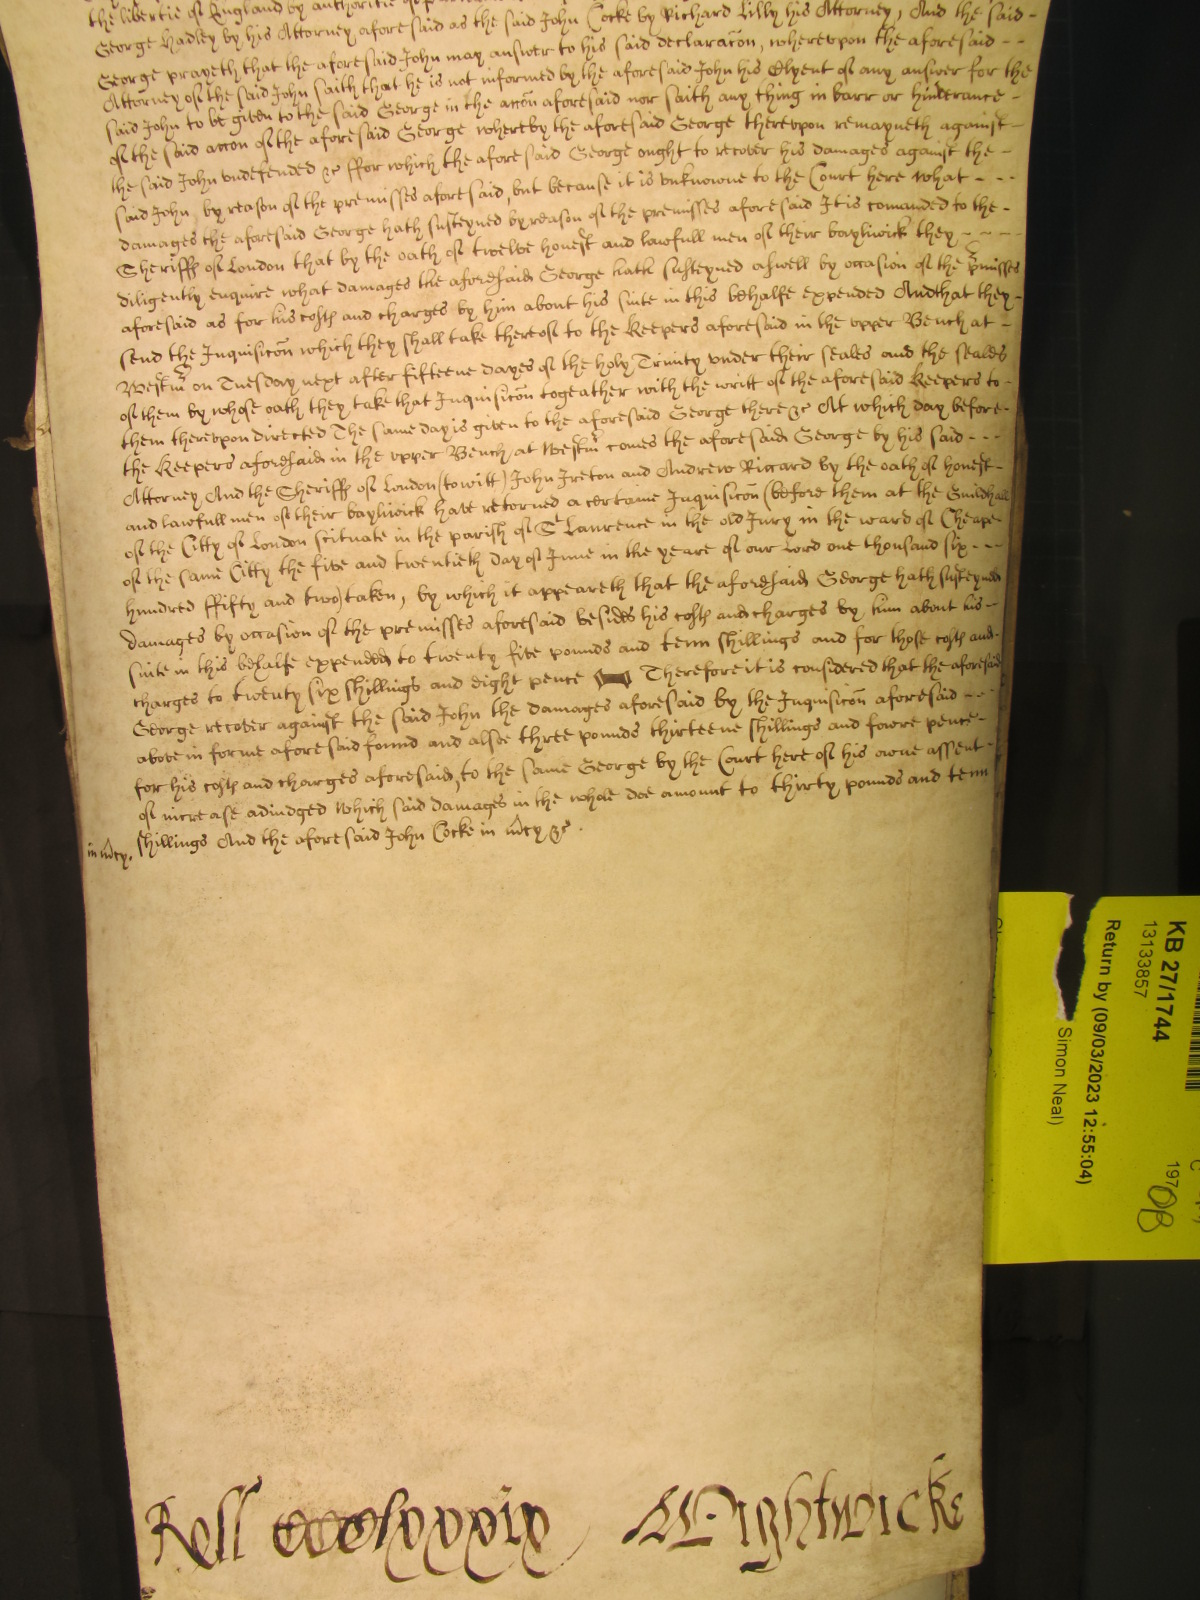 the libertie of England by authoritie of
George Hadley by his Attorney aforesaid as the said John Cocke by Richard Lilly his Attorney, And the said -
George prayeth that the aforesaid John may answer to his said declaracōn, wherevpon the aforesaid - -
Attorney of the said John saith that he is not informed by the aforesaid John his Clyent of any answer for the
said John to be given to the said George in the accōn aforesaid nor saith any thing in barr or hinderance -
of the said accon of the aforesaid George whereby the aforesaid George therevpon remayneth against -
the said John vndefended &c ffor which the aforesaid George ought to recover his damages against the -
said John, by reason of the premisses aforesaid, but because it is vnknowne to the Court here what - - -
damages the aforesaid George hath susteyned by reason of the premisses aforesaid It is comanded to the -
Sheriffs of London that by the oath of twelve honest and lawfull men of their bayliwick they - - - -
diligently enquire what damages the aforesaid George hath susteyned aswell by occasion of the p̄misses
aforesaid as for his costs and charges by him about his suite in this behalfe expended And that they -
send the Inquisicōn which they shall take thereof to the Keepers aforesaid in the vpper Bench at -
Westm̄ on Tuesday next after fifteene dayes of the holy Trinity vnder their seales and the seales
of them by whose oath they take that Inquisicōn togeather with the writt of the aforesaid Keepers to -
them therevpon directed The same day is given to the aforesaid George there &c At which day before -
the Keepers aforesaid in the vpper Bench at Westm̄ comes the aforesaid George by his said - - -
Attorney And the Sheriffs of London (to witt) John Ireton and Andrew Riccard by the oath of honest -
and lawfull men of their bayliwick have retorned a certaine Inquisicōn (before them at the Guildhall
of the Citty of London scituate in the parish of St Lawrence in the old Jury in the ward of Cheape -
of the same Citty the five and twentieth day of June in the yeare of our Lord one thousand six - - -
hundred ffifty and two) taken, by which it appeareth that the aforesaid George hath susteyned
damages by occasion of the premisses aforesaid besides his costs and charges by him about his -
suite in this behalfe expended to twenty five pounds and tenn shillings and for those costs and -
charges to twenty six shillings and eight pence Therefore it is considered that the aforesaid
George recover against the said John the damages aforesaid by the Inquisicōn aforesaid - - -
above in forme aforesaid found and alsoe three pounds thirteene shillings and fowre pence -
for his costs and charges aforesaid, to the same George by the Court here of his owne assent -
of increase adiudged Which said damages in the whole doe amount to thirty pounds and tenn
shillings And the aforesaid John Cocke in m̄cy &c .
in m̄cy.
Roll Wightwicke
KB 27/1744
13133857
Return by (09/03/2023 12:55:04)
Simon Neal)